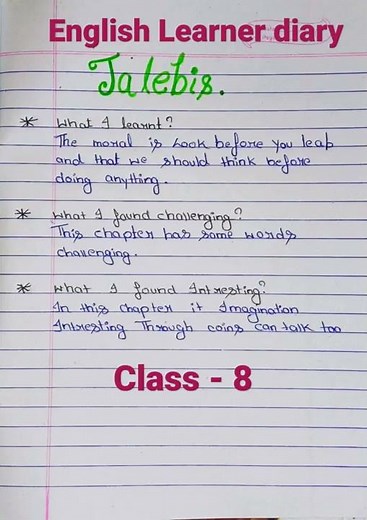 English Learner diary
Jalebis.
* What I learnt?
The moral is Look before you leap
and that we should think before
doing anything.
* What I found challenging?
This chapter has some words
challenging.
* What I found Intresting?
In this chapter it Imagination
Intresting Through coins can talk too
Class - 8